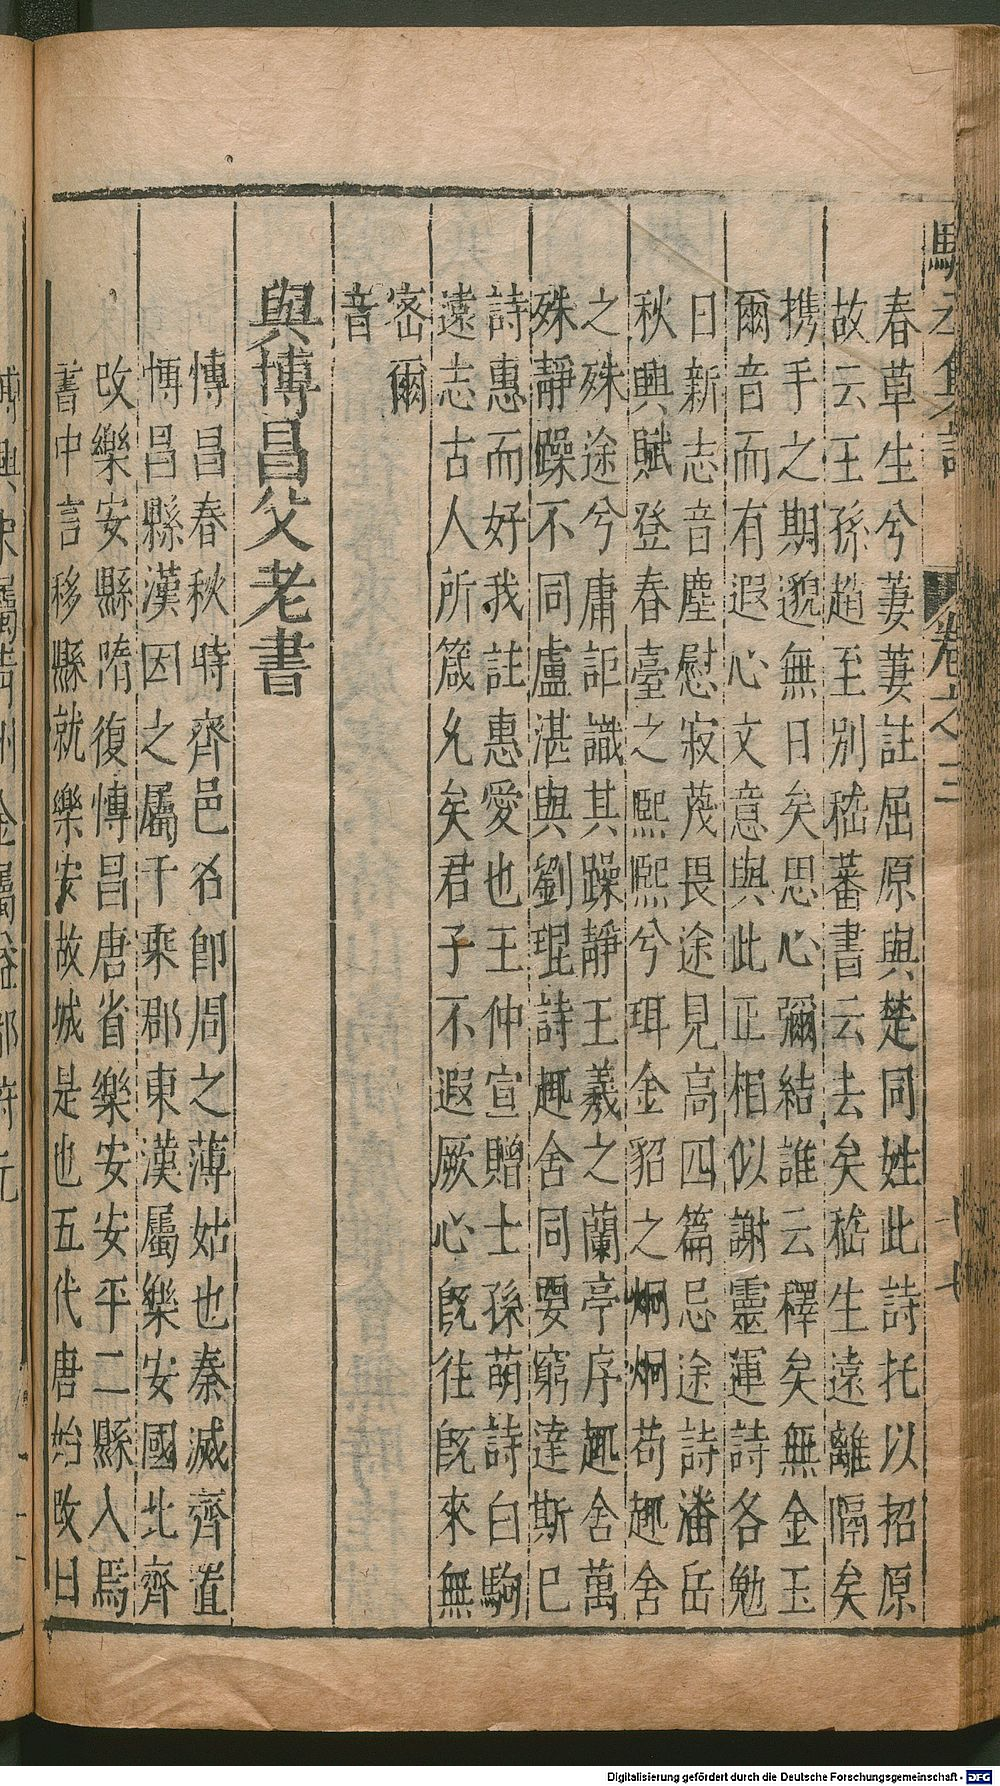 春草生兮萋萋註屈原與楚同姓此詩托以招原
故云王孫趙至別嵇蕃書云去矣嵇生遠離隔矣
携手之期邈無日矣思心彌結誰云釋矣無金玉
爾音而有遐心文意與此正相似謝靈運詩各勉
日新志音塵慰寂蔑畏途見高四篇忌途詩潘岳
秋興賦登春臺之熙熙兮珥金貂之炯炯苟趣舍
之殊途兮庸詎識其躁靜王羲之蘭亭序趣舍萬
殊靜躁不同盧湛與劉琨詩趣舍同要窮達斯已
詩惠而好我註惠愛也王仲宣贈士孫萌詩白駒
遠志古人所箴允矣君子不遐厥心既往既來無
密爾
音
與博昌父老書
博昌春秋時齊邑名卽周之薄姑也秦滅齊置
博昌縣漢因之屬千乘郡東漢屬樂安國北齊
改樂安縣隋復博昌唐省樂安安平二縣入焉
書中言移縣就樂安故城是也五代唐始改曰
卷之三
Digitalisierung gefördert durch die Deutsche Forschungsgemeinschaft - DFG